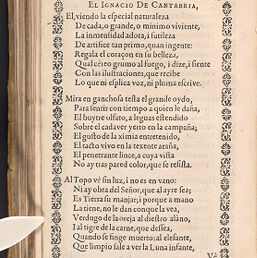 EL IGNACIO DE CANTABRIA,
El, viendo la especial naturaleza
De cada, o grande, o minimo viviente,
La inmensidad adora, i sutileza
De artifice tan primo, quan ingente:
Regala el coraçon en su belleza,
Qual cesto grumo al fuego, i dize, i siente
Con las ilustraciones, que recibe
Lo que ni esplica voz, ni pluma escribe.
Mira en ganchosa testa el grande oydo,
Para sentir con tiempo a quien le daña,
El buytre olfato, a leguas estendido
Sobre el cadaver yerto en la campaña;
El gusto de la ximia entretenido,
El tacto vivo en la texente araña,
El penetrante lince, a cuya vista
No ay tras pared color, que se resista.
Al Topo vé sin luz, i no es en vano:
Ni ay obra del Señor, que al ayre sea;
Es Tierra su manjar; i porque a mano
La tiene, no le dan con que la vea,
Verdugo de la oreja al diestro alano,
I al tigre de la carne, que dessea,
Quando se finge muerto; al elefante,
Que limpio sale a ver la I, una infante,